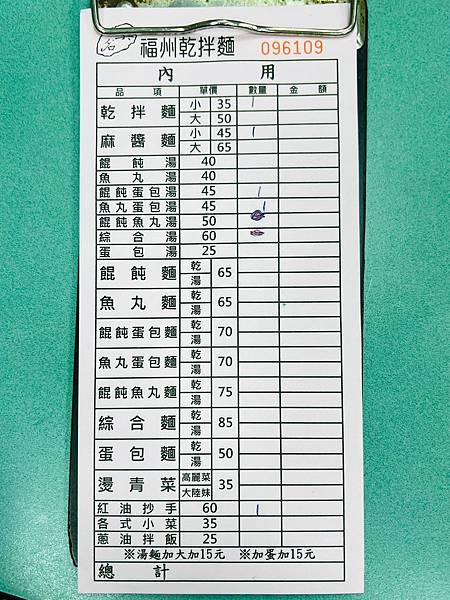 福州乾拌麵 096109
內 用
品 項 單價 數量 金 額
乾拌麵 小 35 1
大 50
麻醬麵 小 45 1
大 65
餛飩湯 40
魚丸湯 40
餛飩蛋包湯 45 1
魚丸蛋包湯 45 1
餛飩魚丸湯 50
綜合湯 60
蛋包湯 25
餛飩麵 乾 湯 65
魚丸麵 乾 湯 65
餛飩蛋包麵 乾 湯 70
魚丸蛋包麵 乾 湯 70
餛飩魚丸麵 乾 湯 75
綜合麵 乾 湯 85
蛋包麵 乾 湯 50
燙青菜 高麗菜 大陸妹 35
紅油抄手 60 1
各式小菜 35
蔥油拌飯 25
※湯麵加大加15元 ※加蛋加15元
總 計